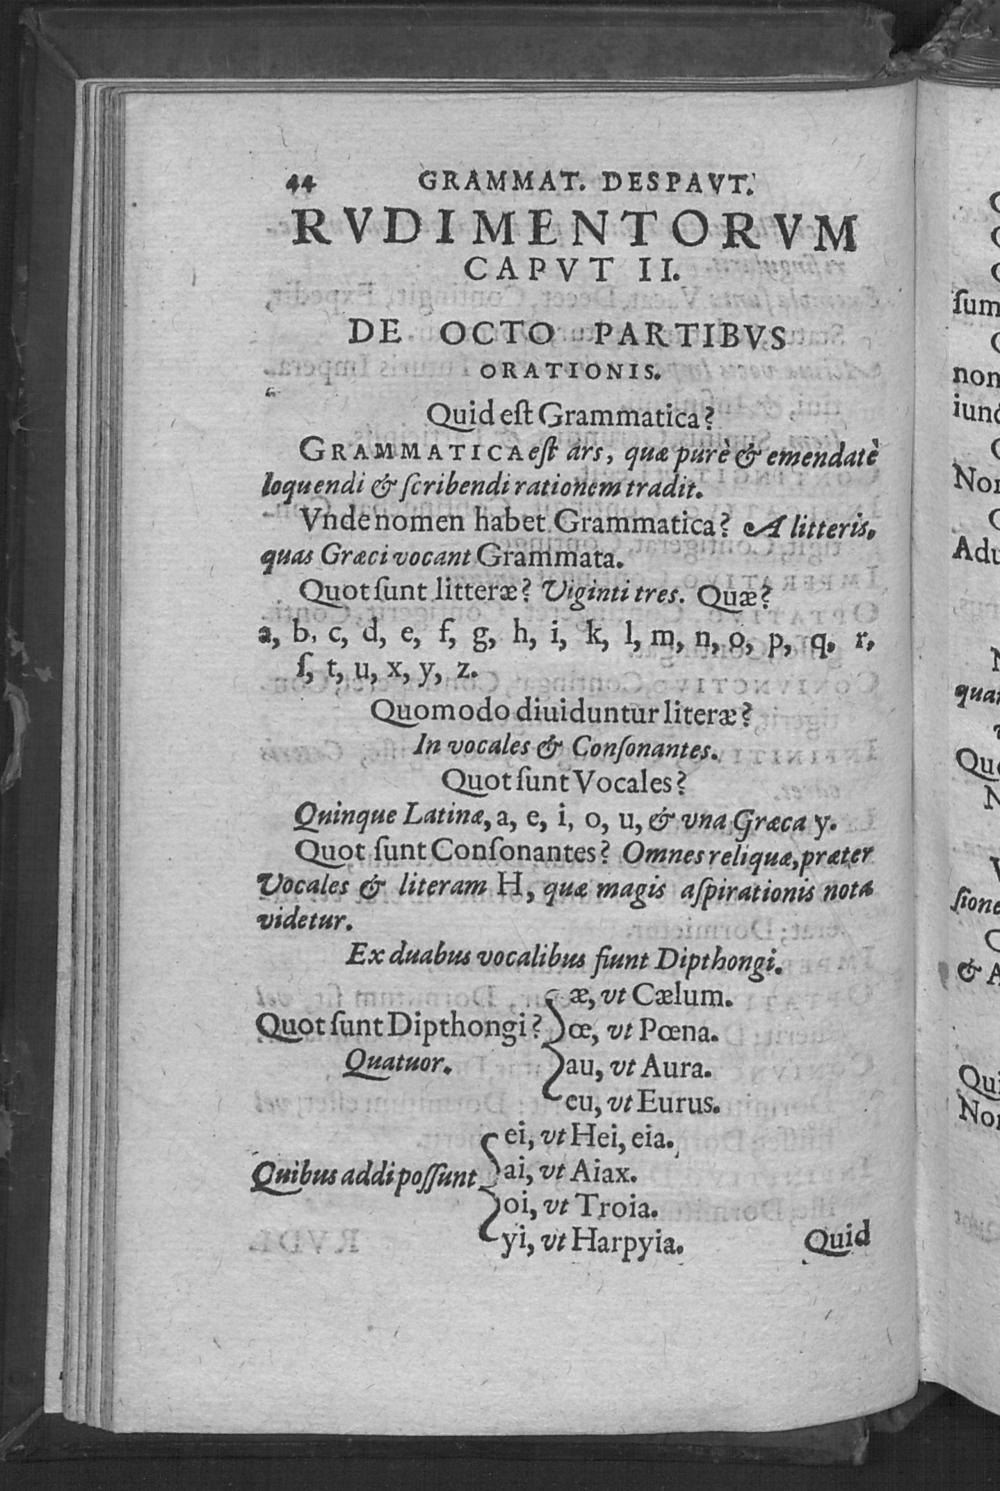 44 GRAMMAT. DESPAVT.
RVDIMENTORVM
CAPVT II.
DE OCTO PARTIBVS
ORATIONIS.
Quid eſt Grammatica?
GRAMMATICA eſt ars, quæ purè & emendatè
loquendi & ſcribendi rationem tradit.
Vnde nomen habet Grammatica? A litteris,
quas Græci vocant Grammata.
Quot ſunt litteræ? Viginti tres. Quæ?
a, b, c, d, e, f, g, h, i, k, l, m, n, o, p, q, r,
ſ, t, u, x, y, z.
Quomodo diuiduntur literæ?
In vocales & Conſonantes.
Quot ſunt Vocales?
Quinque Latinæ, a, e, i, o, u, & vna Græca y.
Quot ſunt Conſonantes? Omnes reliquæ, præter
Vocales & literam H, quæ magis aſpirationis nota
videtur.
Ex duabus vocalibus fiunt Dipthongi.
æ, vt Cælum.
Quot ſunt Dipthongi? œ, vt Pœna.
Quatuor. au, vt Aura.
eu, vt Eurus.
ei, vt Hei, eia.
Quibus addi poſſunt ai, vt Aiax.
oi, vt Troia.
yi, vt Harpyia.
Quid
ſum
non
Qui